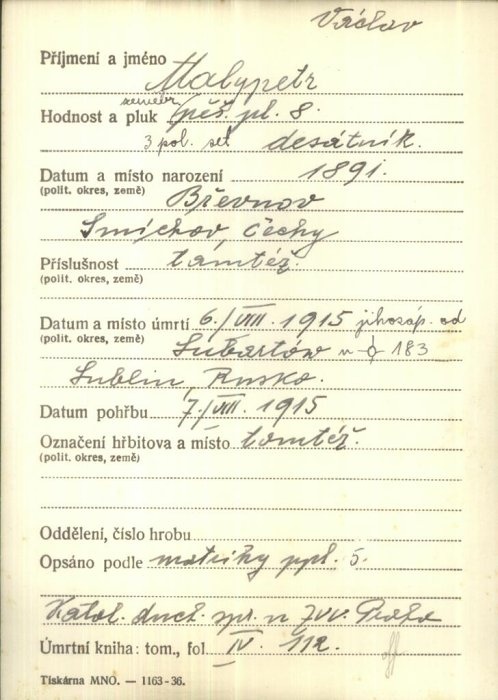 Václav
Příjmení a jméno Malypetr
zeměbr.
Hodnost a pluk pěš. pl. 8.
3 pol. set desátník.
Datum a místo narození 1891.
(polit. okres, země) Břevnov
Smíchov, Čechy
Příslušnost tamtéž.
(polit. okres, země)
Datum a místo úmrtí 6./VIII. 1915 jihozáp. od
(polit. okres, země) Lubartów u 183
Lublin, Rusko.
Datum pohřbu 7./VIII. 1915
Označení hřbitova a místo tamtéž.
(polit. okres, země)
Oddělení, číslo hrobu
Opsáno podle matriky ppl. 5.
Katol. duch. spr. u ZVV. Praha
Úmrtní kniha: tom., fol. IV. 112.
Tiskárna MNO. — 1163-36.